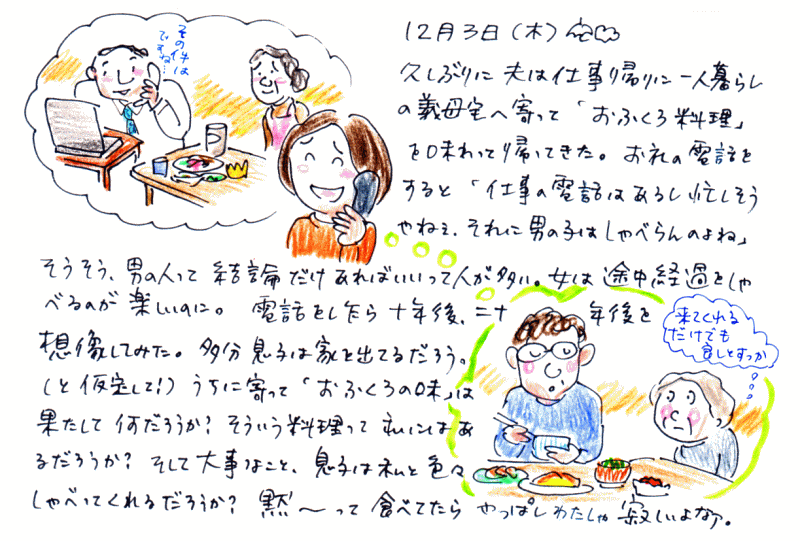 その件は
ですね…
12月3日(木)
久しぶりに 夫は仕事帰りに一人暮らし
の義母宅へ寄って「おふくろ料理」
を味わって帰ってきた。お礼の電話を
すると「仕事の電話はあるし忙しそう
やねぇ、それに男の子はしゃべらんのよね」
そうそう、男の人って 結論だけあればいいって人が多い。女は 途中経過をしゃ
べるのが 楽しいのに。 電話をし乍ら 十年後、二十 年後を
想像してみた。多分 息子は家を出てるだろう。
(と仮定して!) うちに寄って「おふくろの味」は
果たして 何だろうか?そういう料理って 私にはあ
るだろうか? そして大事なこと、息子は私と色々
しゃべってくれるだろうか? 黙〜って 食べてたら やっぱしわたしゃ 寂しいよなァ。
来てくれる
だけでも
良しとすっか